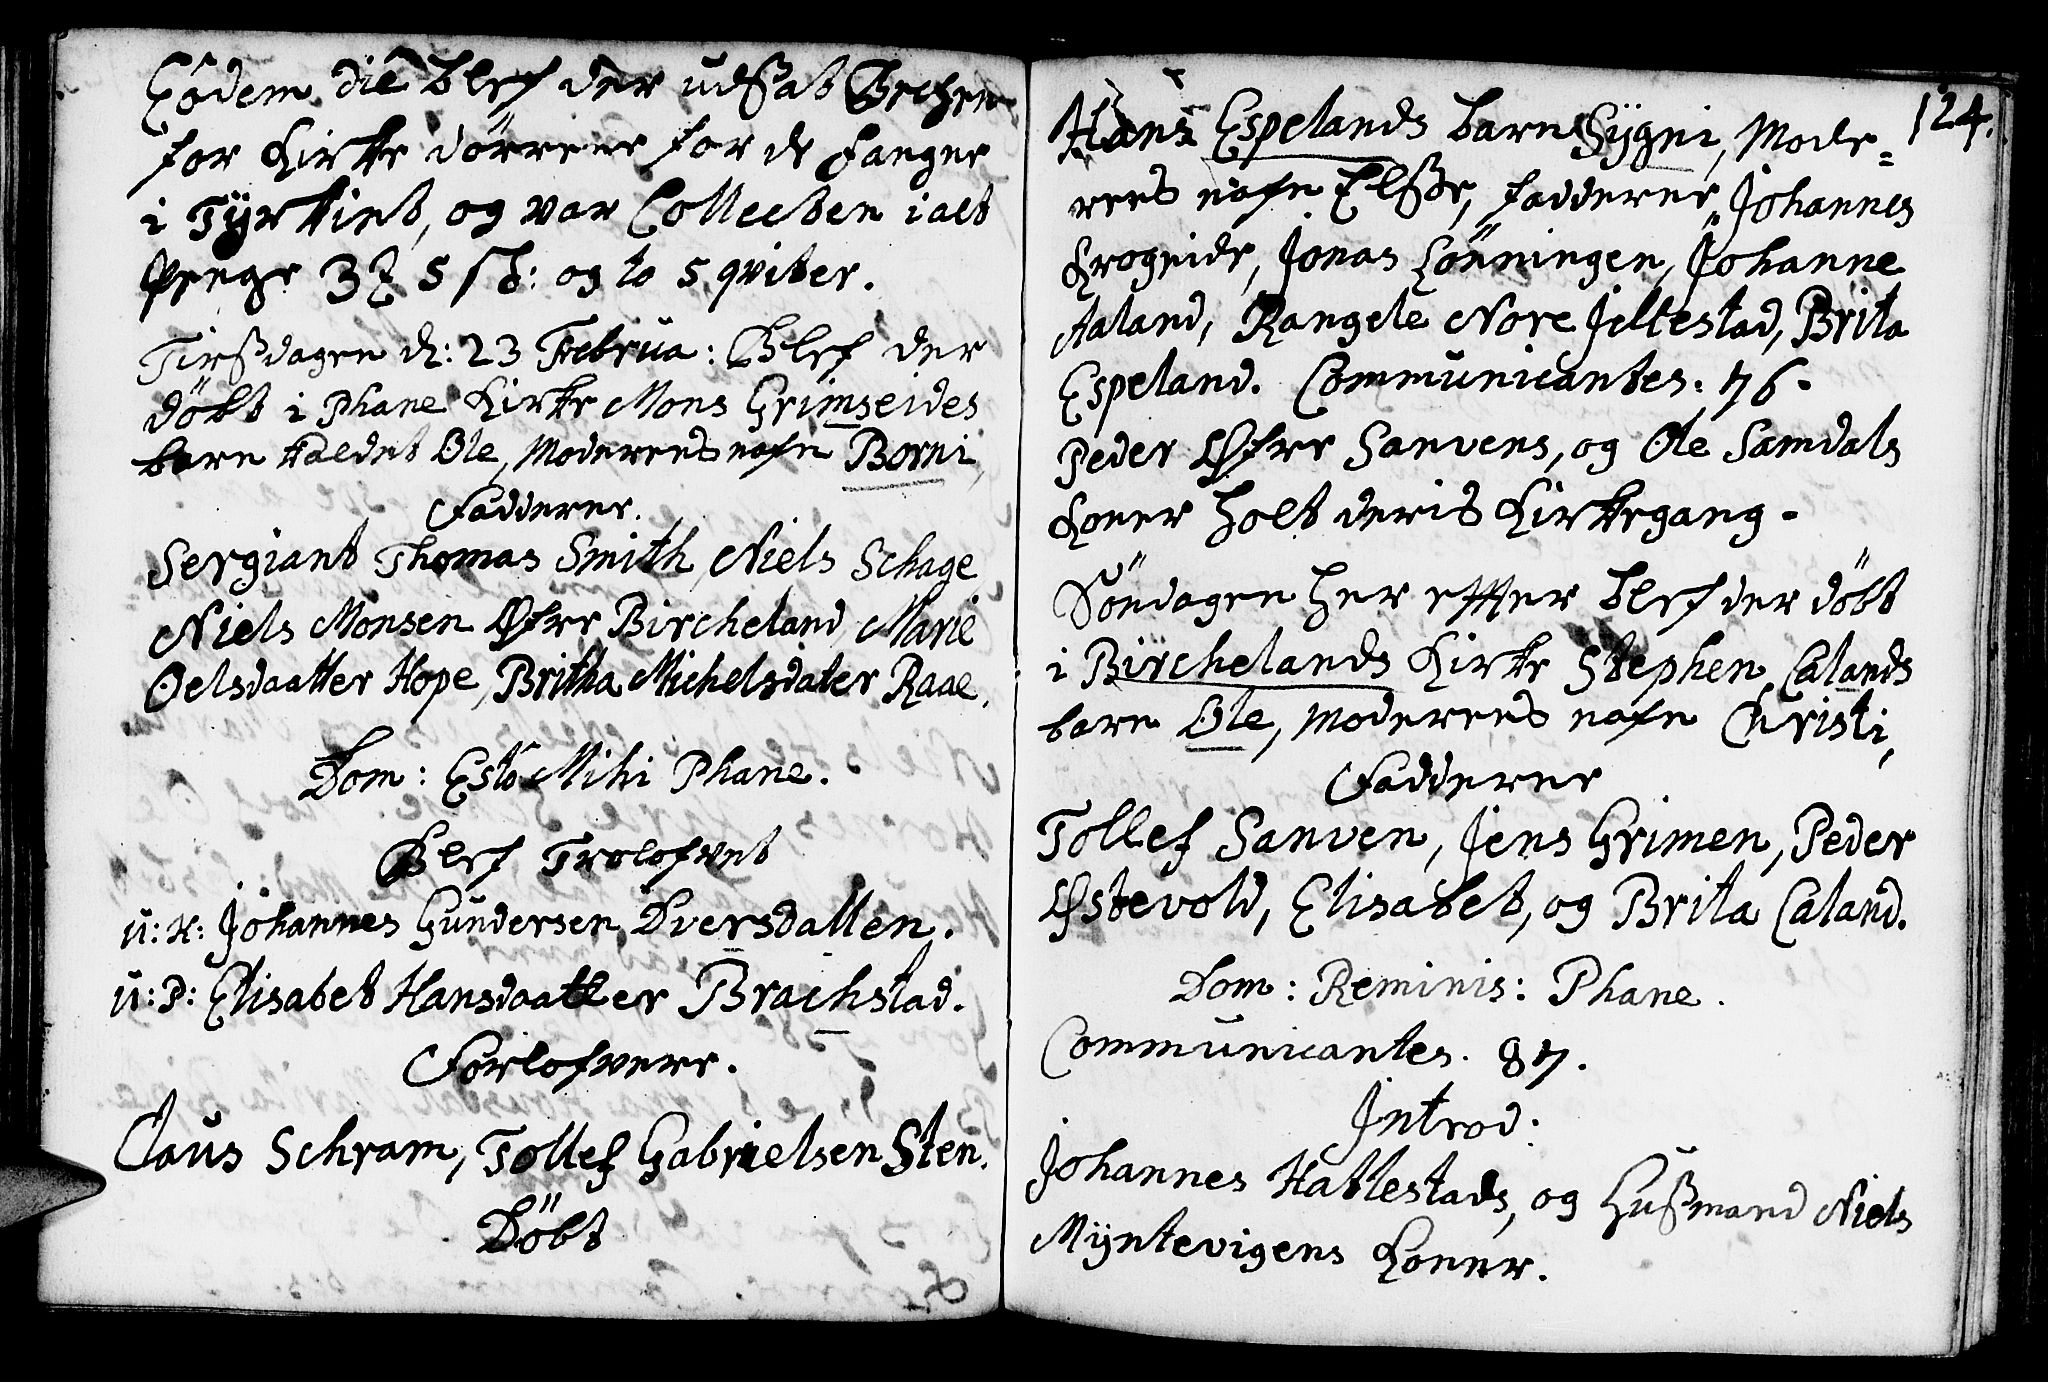 Eodem die blef der udsat Becken
for Kirke dörrene for de Fangne
i Tÿrkiet, og var Collecten i alt
Penge 3 5 sh: og to 5 qviter.
Tirßdagen d: 23 Februa: Blef der
döbt i Phane Kirke Mons Grimseides
barn kaldet Ole, Moderens nafn Borni,
Fadderne.
Sergiant Thomas Smith, Niels Schage
Niels Monsen Øfre Bircheland, Marie
Oelsdaatter Hope, Britha Michelsdater Raae.
Dom: Esto Mihi Phane.
Blef Trolofvet
u: K: Johannes Gundersen Dversdallen.
u: P: Elisabet Hansdaatter Brachstad.
Forlofvere.
Claus Schram, Tollef Gabrielsen Sten.
Döbt
124.
Hans Espelands barn Sÿgni, Mode=
rens nafn Elsße, Fadderne, Johannes
Krogeide, Jonas Lönningen, Johanne
Aaland, Rangele Nore Jiltestad, Brita
Espeland. Communicantes: 76.
Peder Øfre Sanvens, og Ole Samdals
Koner holt deris Kirkegang.
Söndagen her effter blef der döbt
i Birchelands Kirke Stephen Calands
barn Ole, Moderens nafn Christi,
Fadderne
Tollef Sanven, Jens Grimen, Peder
Østevold, Elisabet, og Brita Caland.
Dom: Reminis: Phane.
Communicantes. 87.
Introd:
Johannes Hatlestads, og Hußmand Niels
Mÿntevigens Koner.